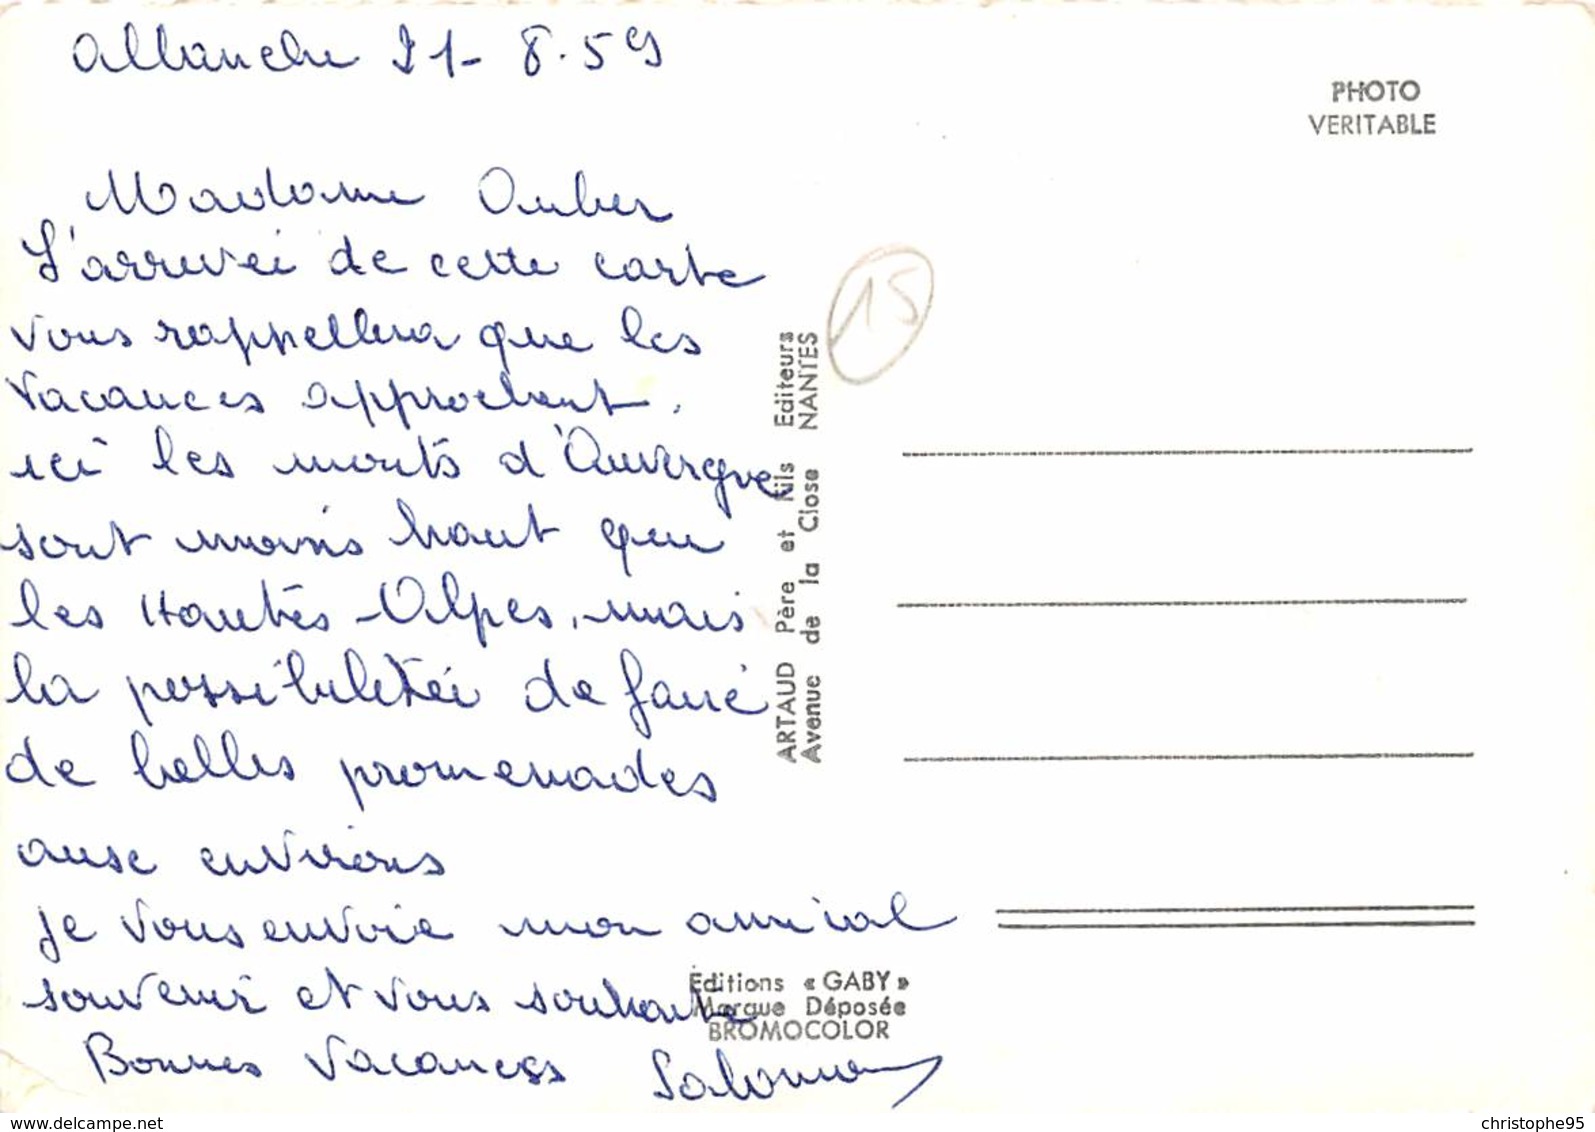 Allanche 21-8.59
Madame Auber
L'arrivéi de cette carte
vous rappellera que les
vacances approchent.
ici les monts d'Auvergne
sont moins haut que
les Hautes-Alpes, mais
la possibilitéi de faire
de belles promenades
aux environs
je vous envoie mon amical
souvenir et vous souhaite
Bonnes Vacances Salomon
PHOTO
VERITABLE
15
ARTAUD Père et Fils Editeurs
Avenue de la Close NANTES
Editions « GABY »
Marque Déposée
BROMOCOLOR
www.delcampe.net
christophe95